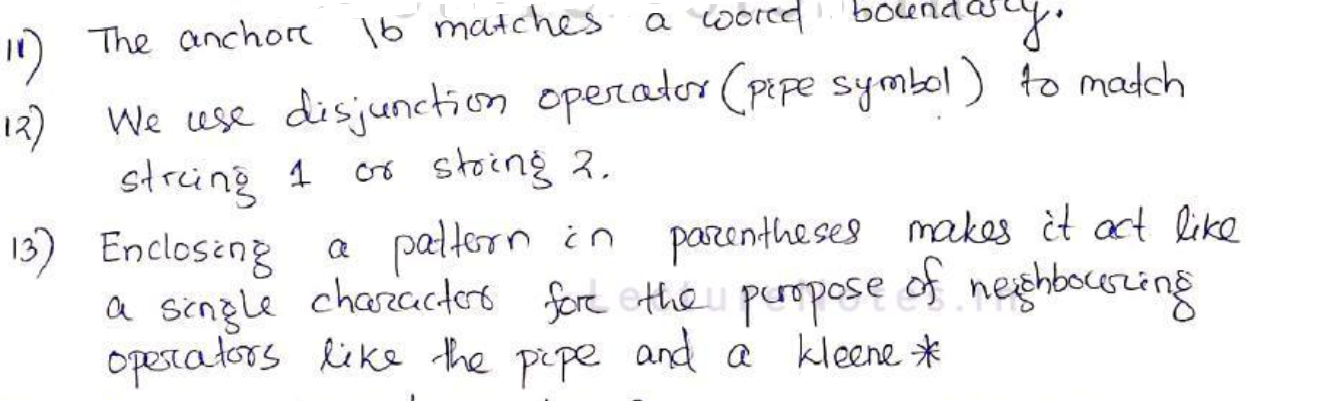 11) The anchor \b matches a word boundary.
12) We use disjunction operator (pipe symbol) to match
string 1 or string 2.
13) Enclosing a pattern in parentheses makes it act like
a single character for the purpose of neighbouring
operators like the pipe and a kleene *